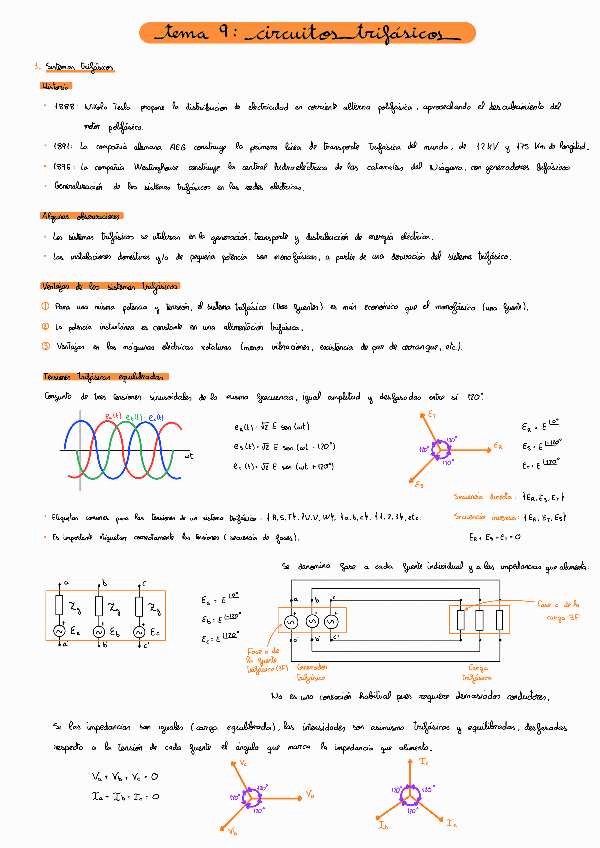 tema 9: circuitos trifásicos
1. Sistemas trifásicos
Historia
· 1888: Nikola Tesla propone la distribución de electricidad en corriente alterna polifásica, aprovechando el descubrimiento del
motor polifásico.
· 1891: La compañía alemana AEG construye la primera línea de transporte trifásica del mundo, de 12 kV y 175 Km de longitud.
· 1896: La compañía Westinghouse construye la central hidroeléctrica de las cataratas del Niágara, con generadores bifásicos
· Generalización de los sistemas trifásicos en las redes eléctricas.
Algunas observaciones
· Los sistemas trifásicos se utilizan en la generación, transporte y distribución de energía eléctrica.
· Las instalaciones domésticas y/o de pequeña potencia son monofásicas, a partir de una derivación del sistema trifásico.
Ventajas de los sistemas trifásicos
① Para una misma potencia y tensión, el sistema trifásico (tres fuentes) es más económico que el monofásico (una fuente).
② La potencia instantánea es constante en una alimentación trifásica.
③ Ventajas en las máquinas eléctricas rotativas (menos vibraciones, existencia de par de arranque, etc.).
Tensiones trifásicas equilibradas
Conjunto de tres tensiones sinusoidales de la misma frecuencia, igual amplitud y desfasadas entre sí 120°.
e_R(t) e_S(t) e_T(t)
ωt
e_R(t) = √2 E sen(ωt)
e_S(t) = √2 E sen(ωt - 120°)
e_T(t) = √2 E sen(ωt + 120°)
E_T
120° 120° E_R
120°
E_S
E_R = E |0°
E_S = E |-120°
E_T = E |120°
Secuencia directa: {E_R, E_S, E_T}
· Etiquetas comunes para las tensiones de un sistema trifásico: {R, S, T}, {U, V, W}, {a, b, c}, {1, 2, 3}, etc.
Secuencia inversa: {E_R, E_T, E_S}
· Es importante etiquetar correctamente las tensiones (secuencia de fases).
E_R + E_S + E_T = 0
Se denomina fase a cada fuente individual y a las impedancias que alimenta.
a b c
Z_g Z_g Z_g
E_a E_b E_c
a' b' c'
E_a = E |0°
E_b = E |-120°
E_c = E |120°
a b c
a' b' c'
Fase a de
la fuente
trifásica (3F)
Generador
trifásico
Carga
trifásica
Fase a de la
carga 3F
No es una conexión habitual pues requiere demasiados conductores.
Si las impedancias son iguales (carga equilibrada), las intensidades son asimismo trifásicas y equilibradas, desfasadas
respecto a la tensión de cada fuente el ángulo que marca la impedancia que alimenta.
V_a + V_b + V_c = 0
I_a + I_b + I_c = 0
V_c
120° 120° V_a
120°
V_b
I_c
120° 120°
120°
I_b I_a